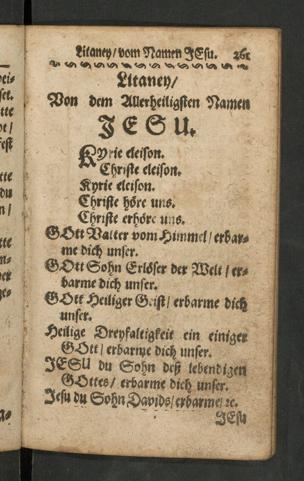 Litaney/ vom Namen JEsu. 261
Litaney/
Von dem Allerheiligsten Namen
JESU.
Kyrie eleison.
Christe eleison.
Kyrie eleison.
Christe höre uns.
Christe erhöre uns.
GOtt Vatter vom Himmel/ erbar-
me dich unser.
GOtt Sohn Erlöser der Welt/ er-
barme dich unser.
GOtt Heiliger Geist/ erbarme dich
unser.
Heilige Dreyfaltigkeit ein einiger
GOtt/ erbarme dich unser.
JESU du Sohn deß lebendigen
GOttes/ erbarme dich unser.
Jesu du Sohn Davids/ erbarme/ ꝛc.
JEsu